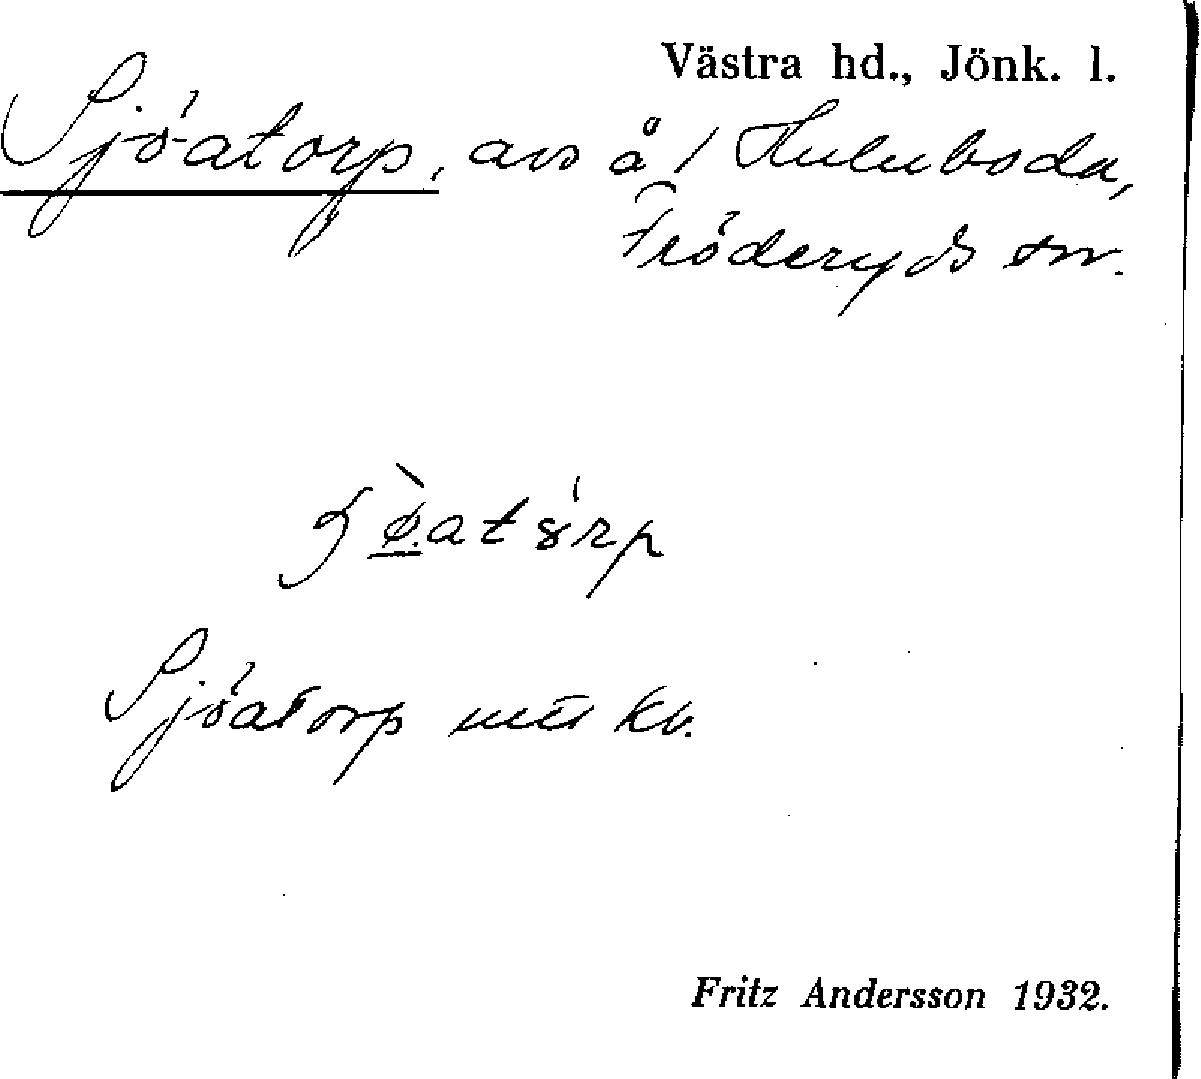 Västra hd., Jönk. l.
Sjöatorp, avs å / Huluboda,
Fröderyds sn.
Sjöatorp kv.
Fritz Andersson 1932.